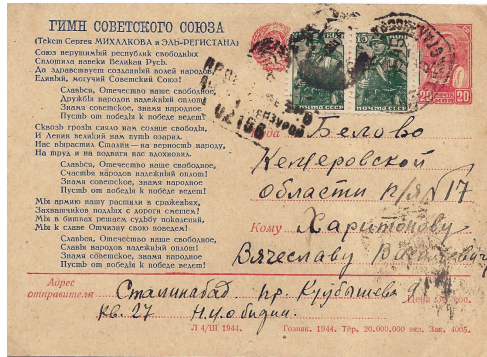 ГИМН СОВЕТСКОГО СОЮЗА
(Текст Сергея МИХАЛКОВА и ЭЛЬ-РЕГИСТАНА)
Союз нерушимый республик свободных
Сплотила навеки Великая Русь.
Да здравствует созданный волей народов
Единый, могучий Советский Союз!
Славься, Отечество наше свободное,
Дружбы народов надежный оплот!
Знамя советское, знамя народное
Пусть от победы к победе ведет!
Сквозь грозы сияло нам солнце свободы,
И Ленин великий нам путь озарил.
Нас вырастил Сталин — на верность народу,
На труд и на подвиги нас вдохновил.
Славься, Отечество наше свободное,
Счастья народов надежный оплот!
Знамя советское, знамя народное
Пусть от победы к победе ведет!
Мы армию нашу растили в сраженьях,
Захватчиков подлых с дороги сметем!
Мы в битвах решаем судьбу поколений,
Мы к славе Отчизну свою поведем!
Славься, Отечество наше свободное,
Славы народов надежный оплот!
Знамя советское, знамя народное
Пусть от победы к победе ведет!
15
ПОЧТА СССР
20 20
02166
Куда Белово
Кемеровской
области п/я №17
Кому Харитонову
Вячеславу
Адрес отправителя Сталинабад пр Куйбышева
Цена коп.
кв. 27
Л 4/III 1944. Гознак. 1944. Тир. 20.000.000 экз. Зак. 4005.